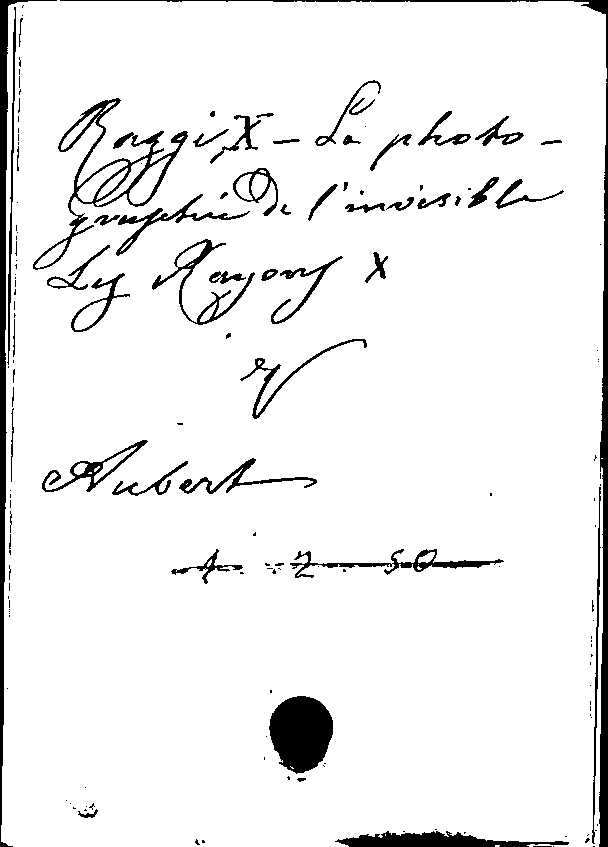 Raggi X - La photo-
graphie de l'invisible
Les Rayons X
V
Aubert
1 2 50